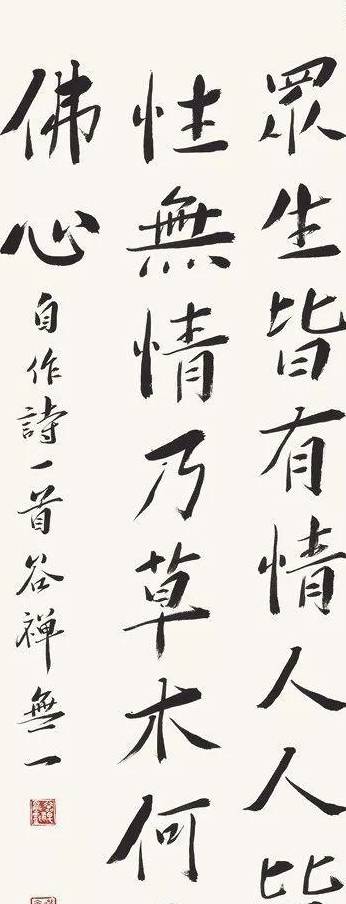 眾生皆有情人人皆
性無情乃草木何
佛心
自作詩一首谷禪無一